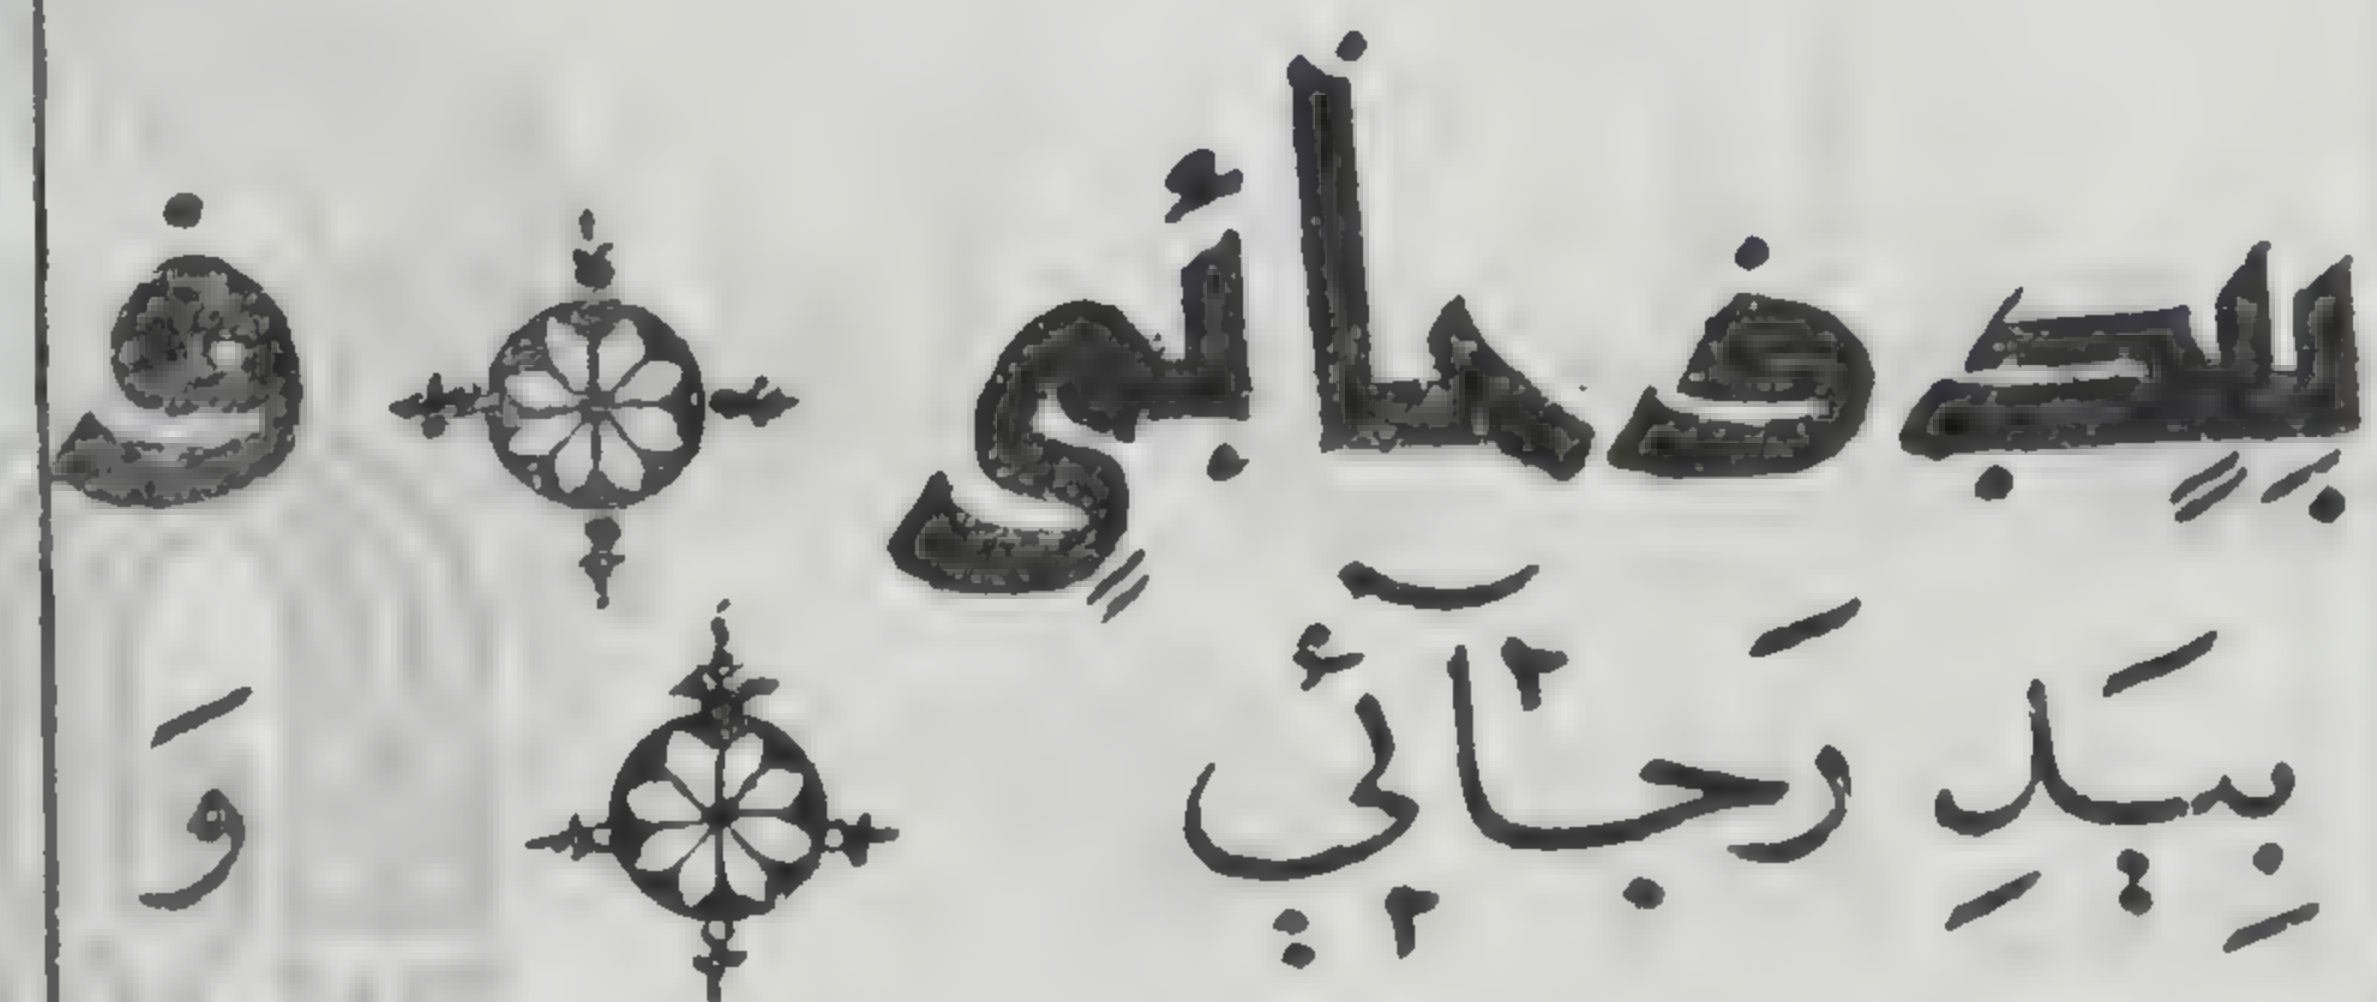 بيد رحائى و
بِيَدِ رَجَآئي وَ